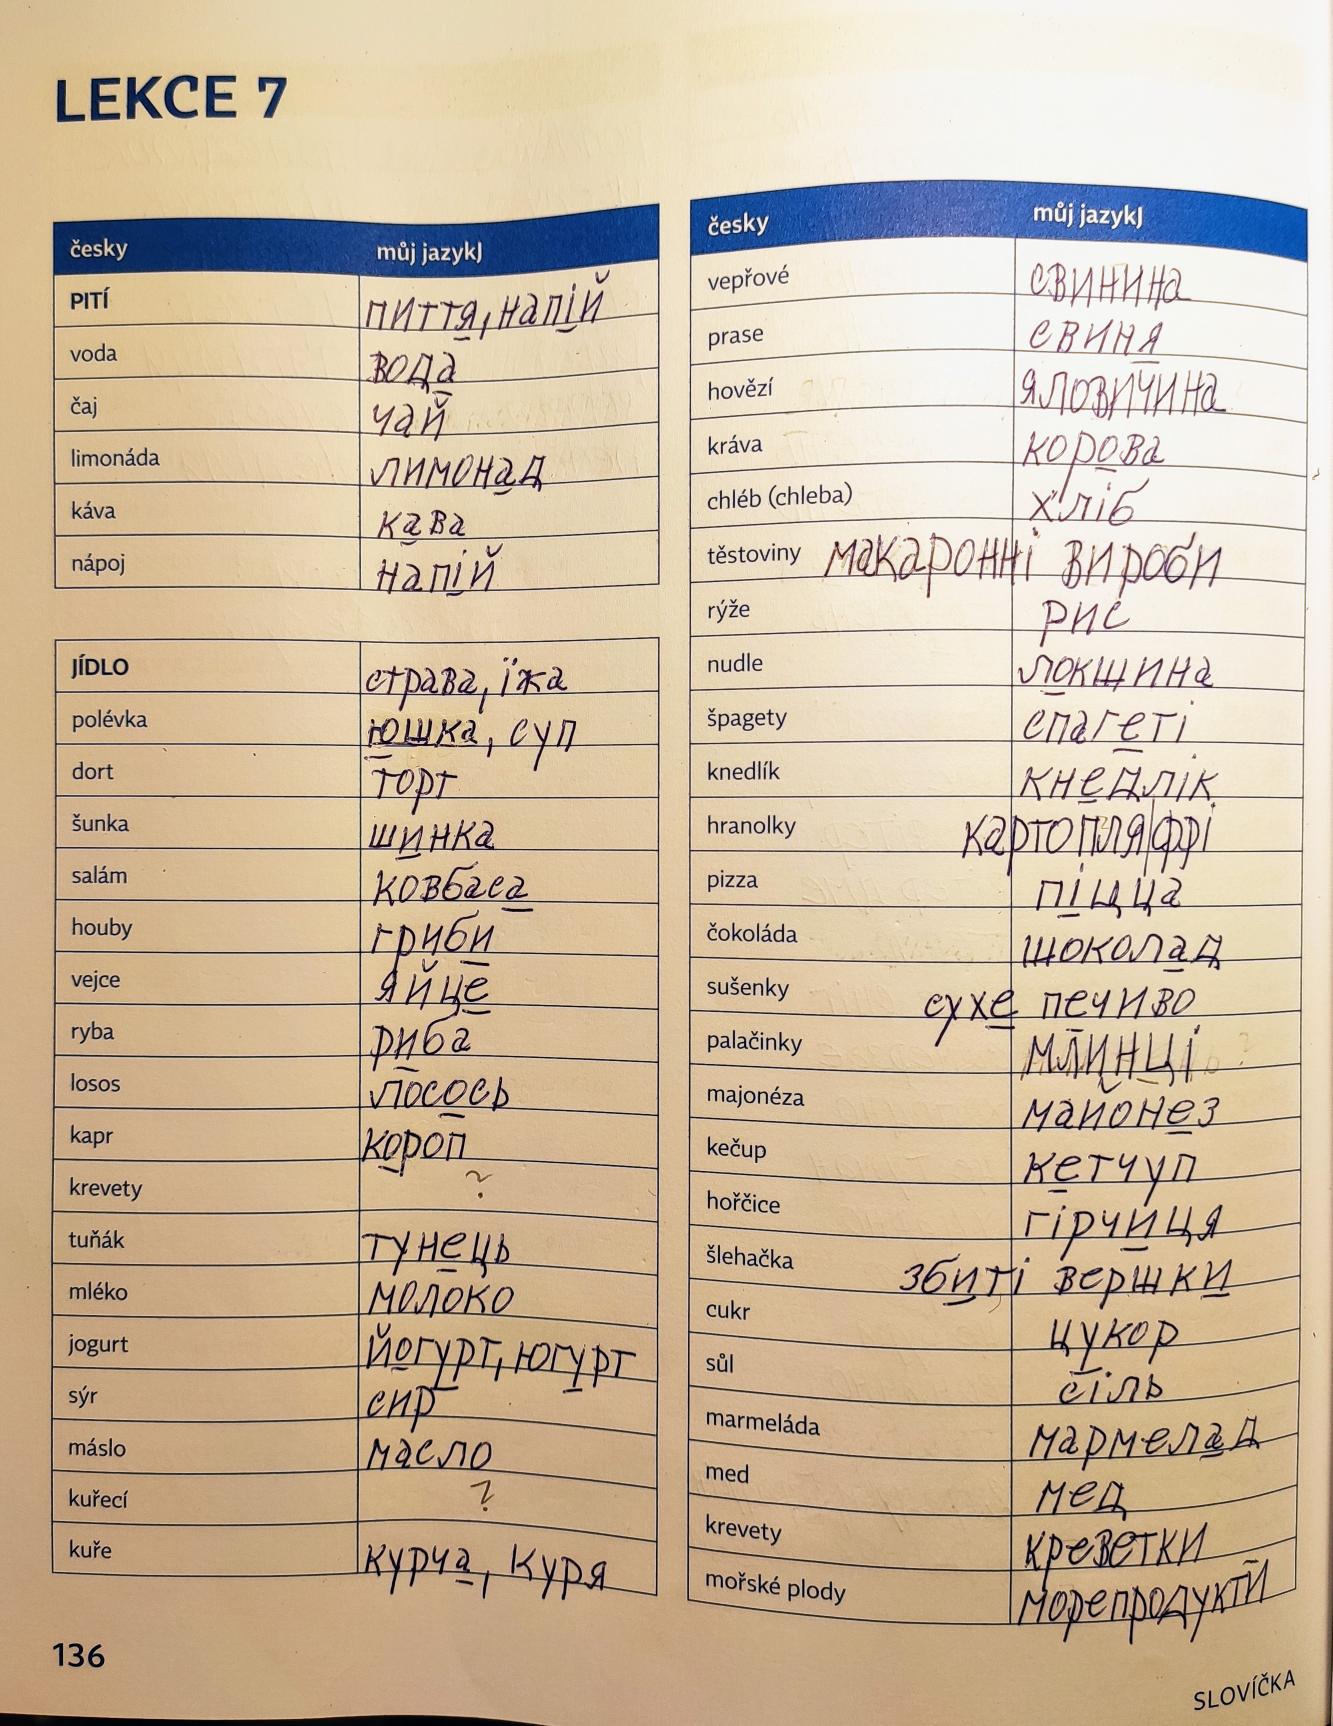 LEKCE 7
česky můj jazykJ
PITÍ пиття, напій
voda вода
čaj чай
limonáda лимонад
káva кава
nápoj напій
JÍDLO страва, їжа
polévka юшка, суп
dort торт
šunka шинка
salám ковбаса
houby гриби
vejce яйце
ryba риба
losos лосось
kapr короп
krevety ?
tuňák тунець
mléko молоко
jogurt йогурт, югурт
sýr сир
máslo масло
kuřecí ?
kuře курча, куря
česky můj jazykJ
vepřové свинина
prase свиня
hovězí яловичина
kráva корова
chléb (chleba) хліб
těstoviny макаронні вироби
rýže рис
nudle локшина
špagety спагеті
knedlík кнедлік
hranolky картопля фрі
pizza піцца
čokoláda шоколад
sušenky сухе печиво
palačinky млинці ?
majonéza майонез
kečup кетчуп
hořčice гірчиця
šlehačka збиті вершки
cukr цукор
sůl сіль
marmeláda мармелад
med мед
krevety креветки
mořské plody морепродукти
136
SLOVÍČKA